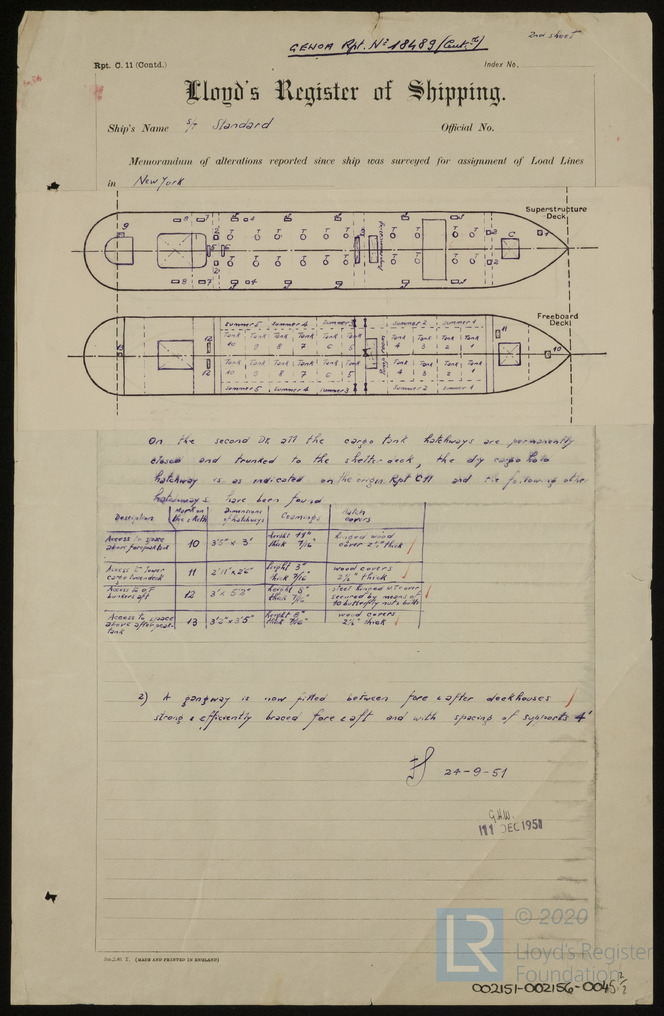 GENOA Rpt. Nº 18489 (Cont.)
2nd sheet
Rpt. C. 11 (Contd.)
Index No.
Lloyd's Register of Shipping.
Ship's Name S/T Standard
Official No.
Memorandum of alterations reported since ship was surveyed for assignment of Load Lines
in New York
Superstructure
Deck
Freeboard
Deck
Summer 5 Summer 4 Summer 3 Summer 2 Summer 1
Tank Tank Tank Tank Tank Tank Tank Tank Tank Tank
10 9 8 7 6 5 4 3 2 1
Pump room
Tank Tank Tank Tank Tank Tank Tank Tank Tank Tank
10 9 8 7 6 5 4 3 2 1
Summer 5 Summer 4 Summer 3 Summer 2 Summer 1
On the second DK all the cargo tank hatchways are permanently
closed and trunked to the shelter deck, the dry cargo hold
hatchway is as indicated on the origin. Rpt C11 and the following other
hatchways have been found
Description
Mark on the sketch
Dimensions of hatchways
Coamings
Hatch covers
Access to space above forepeak tank 10 3'5" x 3' height 18" thick 7/16" hinged wood cover 2½" thick
Access to lower cargo tweendeck 11 2'11" x 2'6" height 9" thick 7/16" wood covers 2½" thick
Access to O.F. bunkers aft 12 3' x 5'3" height 8" thick 7/16" steel hinged W.T. cover secured by means of 10 butterfly nuts bolts
Access to space above after peak tank 13 3'2" x 3'5" height 8" thick 7/16" wood covers 2½" thick
2) A gangway is now fitted between fore & after deckhouses
strong & efficiently braced fore & aft and with spacing of supports 4'
24-9-51
G.H.W.
11 DEC 1951
(MADE AND PRINTED IN ENGLAND)
LR
© 2020
Lloyd's Register
Foundation
002151-002156-0045 2/2